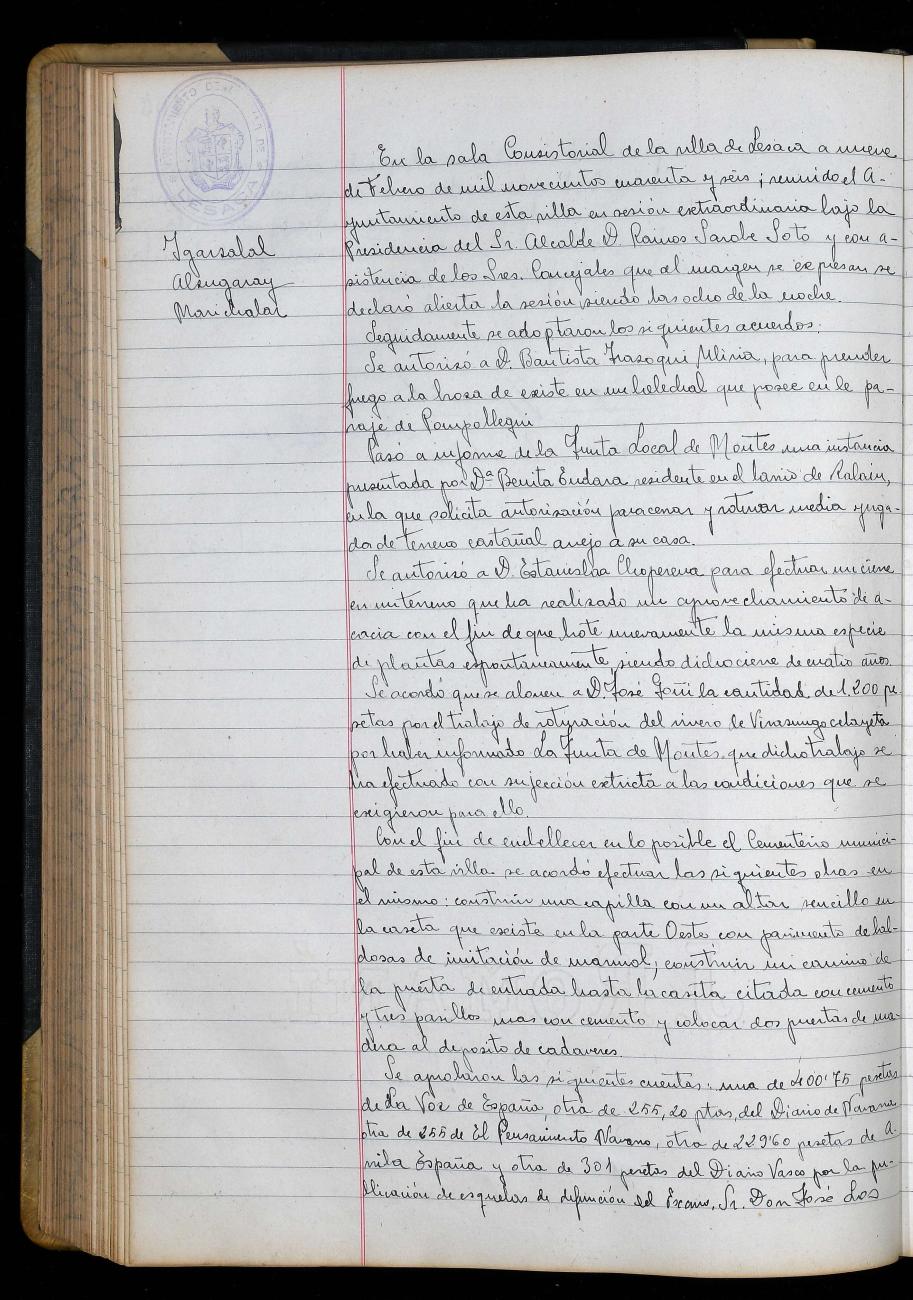 AYUNTAMIENTO DE LA VILLA DE
LESACA
Igarzabal
Alzugaray
Marichalar
En la sala Consistorial de la villa de Lesaca a nueve
de Febrero de mil novecientos cuarenta y séis; reunido el A-
yuntamiento de esta villa en sesión extraordinaria bajo la
Presidencia del Sr. Alcalde D. Ramos Sarobe Soto y con a-
sistencia de los Sres. Concejales que al margen se expresan se
declaró abierta la sesión, siendo las ocho de la noche.
Seguidamente se adoptaron los siguientes acuerdos:
Se autorizó a D. Bautista Irazoqui Mina, para prender
fuego a la broza de existe en un helechal que posee en le pa-
raje de Pompollegui
Pasó a informe de la Junta Local de Montes una instancia
presentada por Dª Benita Endara residente en el barrio de
en la que solicita autorización para cerrar y roturar media yuga-
da de terreno castañal anejo a su casa.
Se autorizó a D. Estanislaa Choperena para efectuar un cierre
en un terreno que ha realizado un aprovechamiento de a-
cacia con el fin de que brote nuevamente la misma especie
de plantas espontaneamente, siendo dicho cierre de cuatro años.
Se acordó que se abonen a D. José Goñi la cantidad de 1.200 pe-
setas por el trabajo de roturación del vivero de
por haber informado La Junta de Montes que dicho trabajo se
ha efectuado con sujección extricta a las condiciones que se
exigieron para ello.
Con el fin de embellecer en lo posible el Cementerio munici-
pal de esta villa se acordó efectuar las siguientes obras en
el mismo: construir una capilla con un altar sencillo en
la caseta que existe en la parte Oeste con pavimento de bal-
dosas de imitación de marmol; construir un camino de
la puerta de entrada hasta la caseta citada con cemento
y tres pasillos mas con cemento y colocar dos puertas de ma-
dera al deposito de cadaveres.
Se aprobaron las siguientes cuentas: una de 400'75 pesetas
de La Voz de España, otra de 255,20 ptas, del Diario de Navarra
otra de 255 de El Pensamiento Navarro, otra de 229'60 pesetas de A-
rriba España y otra de 301 pesetas del Diario Vasco por la pu-
blicación de esquelas de defunción del Excmo. Sr. Don José Los